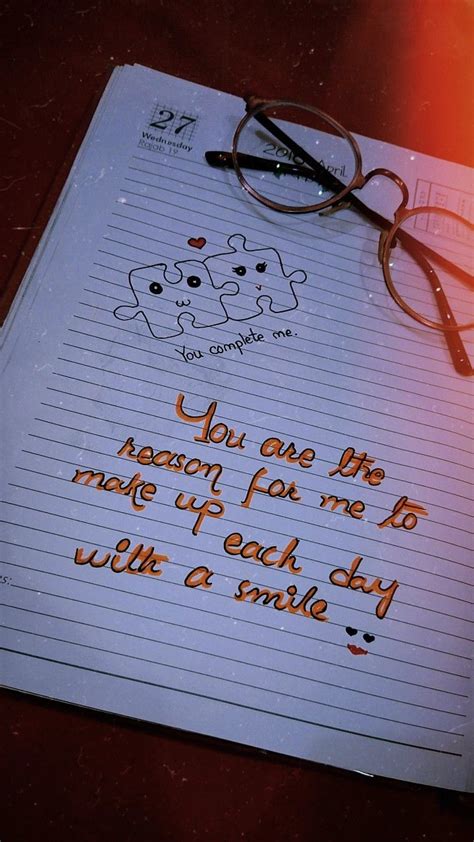 27
Wednesday
Rajab 19
2016 April
You complete me.
You are the
reason for me to
make up each day
with a smile
es: